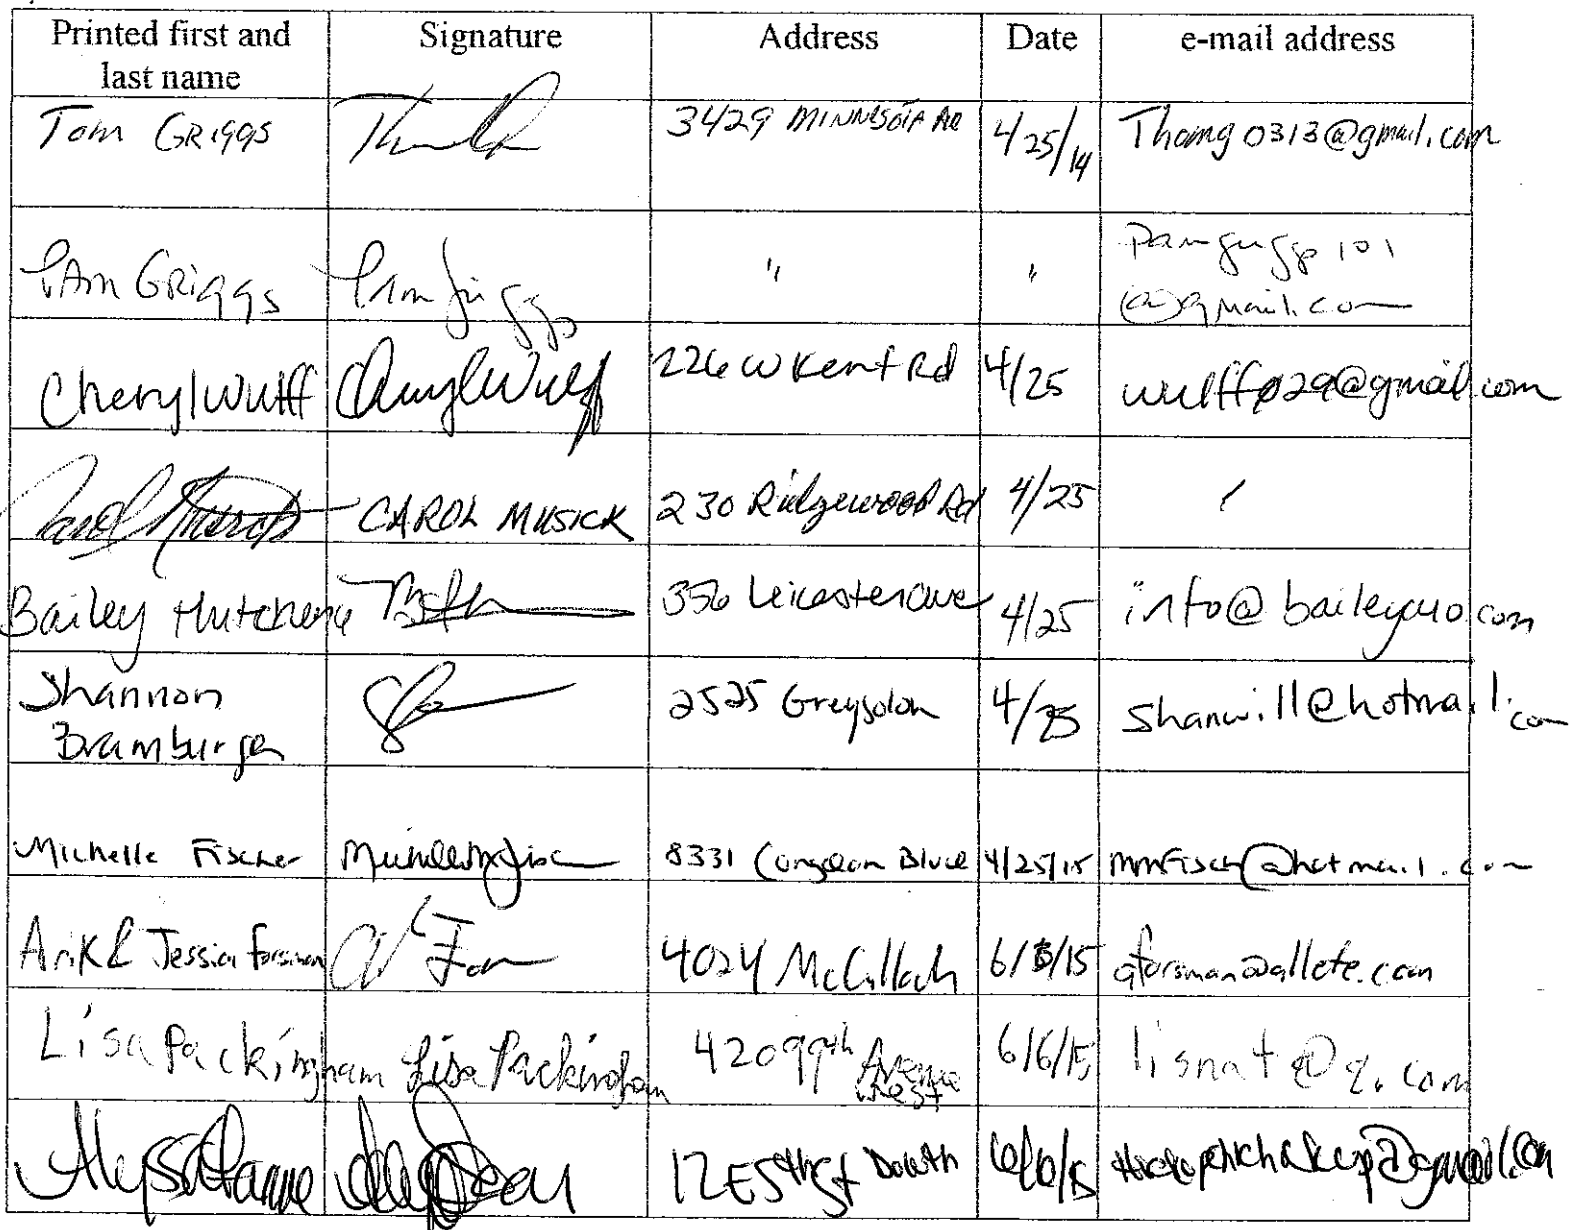 Printed first and last name Signature Address Date e-mail address
Tom GRiggs 3429 MINNESOTA Ave 4/25/14 Thomg0313@gmail.com
PAm GRiggs Pam Griggs " " pamgriggs101
@gmail.com
Cheryl Wulff Cheryl Wulff 226 W Kent Rd 4/25 wulff029@gmail.com
Carol Musick CAROL MUSICK 230 Ridgewood Rd 4/25
Bailey 356 Leicester Ave 4/25
Shannon 2525 Greysolon 4/25 shanwill@hotmail.com
Michelle Fischer 8331 Congdon Blvd 4/25/15 mmfisch@hotmail.com
Arik & Jessica Forsman 4024 McCulloch 6/ /15 aforsman@allete.com
Lisa Packingham Lisa Packingham 420 99th Avenue West 6/6/15 lisnat@q.com
12 E 5th St Duluth